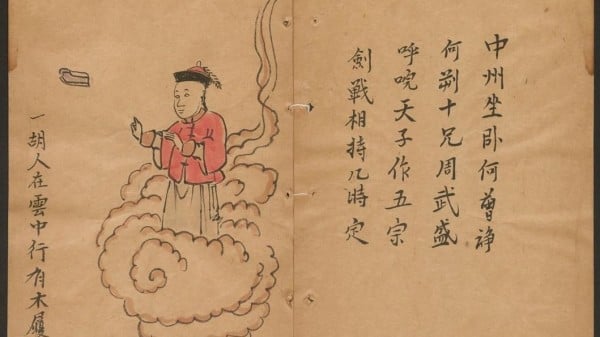 中州坐卧何曾諍
何朔十兄周武盛
呼唍天子作五宗
劍戰相持几時定
一胡人在雲中行有木履